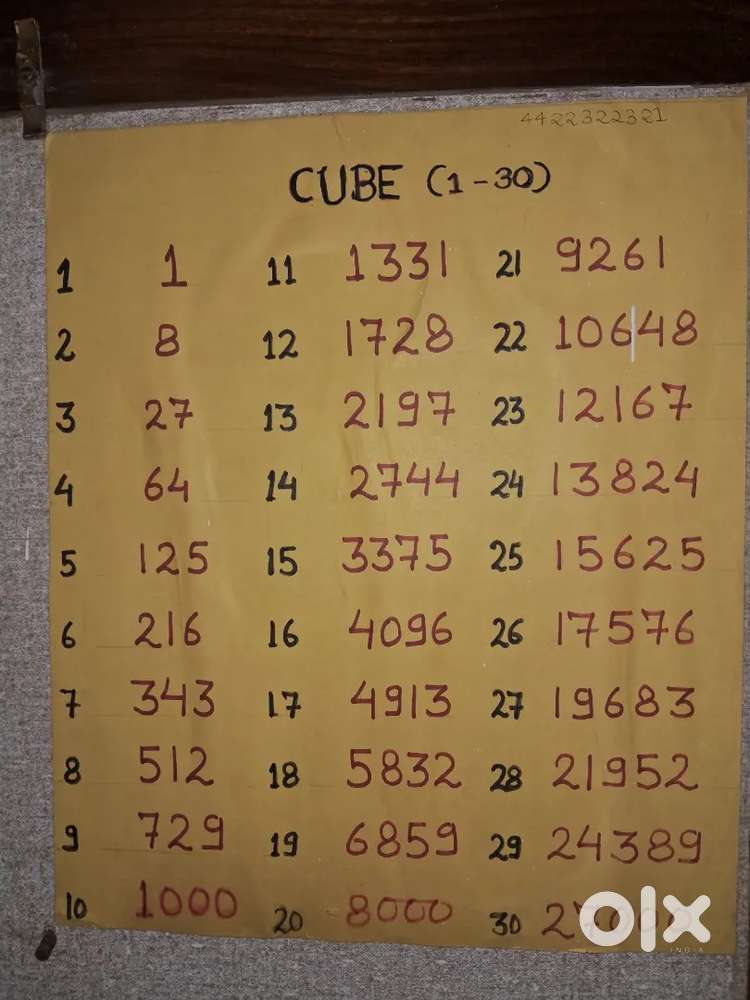 4422322321
CUBE (1-30)
1 1 11 1331 21 9261
2 8 12 1728 22 10648
3 27 13 2197 23 12167
4 64 14 2744 24 13824
5 125 15 3375 25 15625
6 216 16 4096 26 17576
7 343 17 4913 27 19683
8 512 18 5832 28 21952
9 729 19 6859 29 24389
10 1000 20 8000 30 27000
olx
INDIA